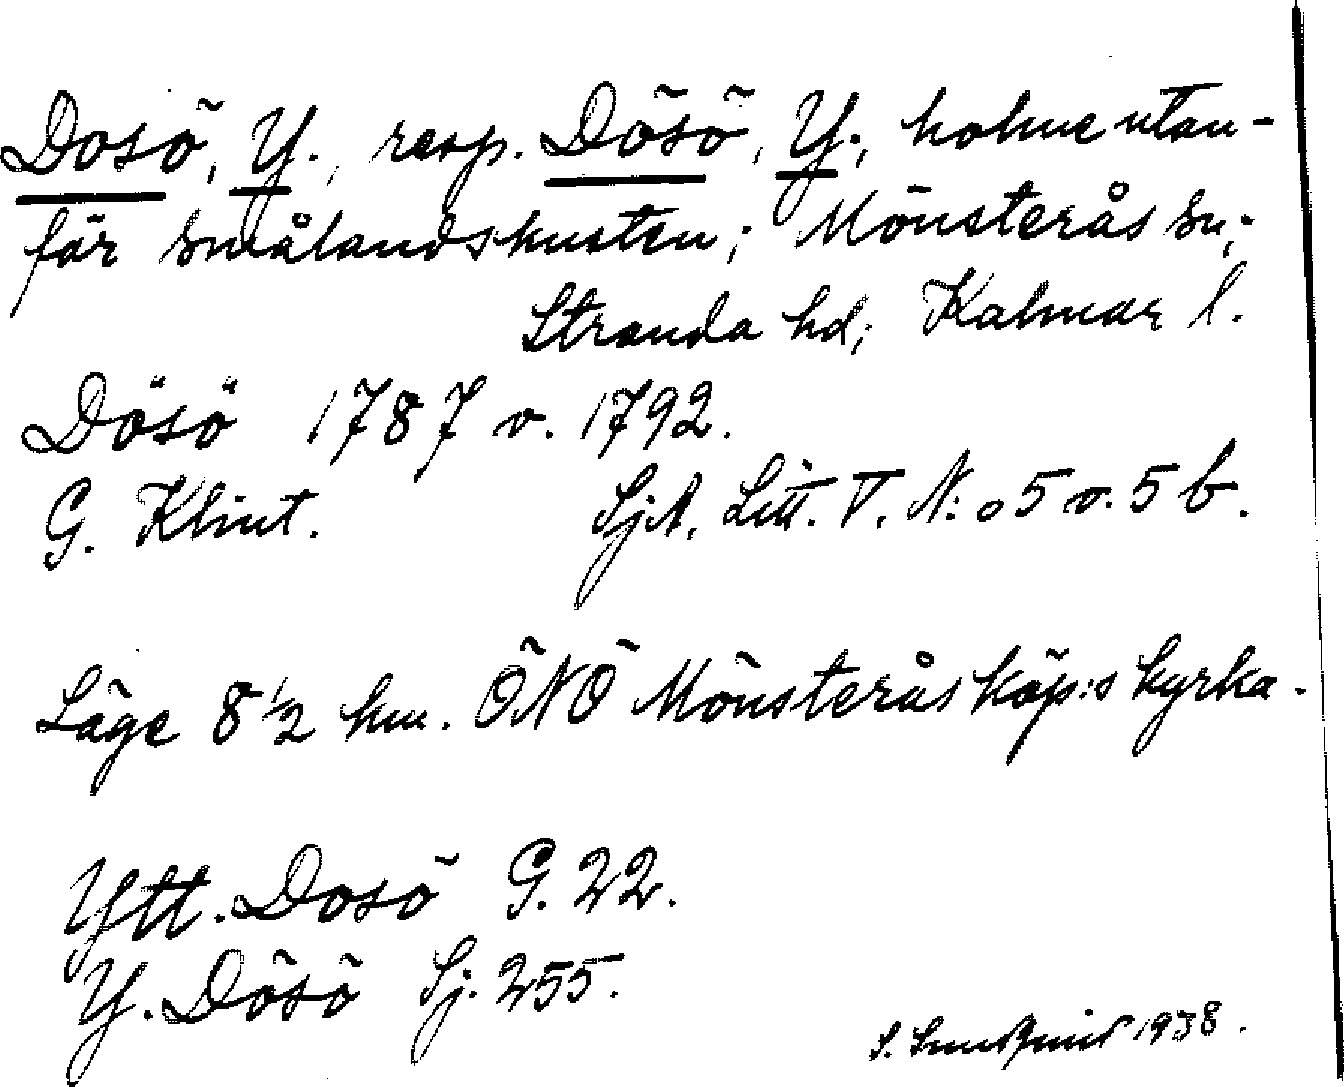 Dosö, Y., resp. Dösö, Y., holme utan-
för Smålandskusten; Mönsterås sn;
Stranda hd; Kalmar l.
Dösö 1787 o. 1792.
G. Klint. SjA. Litt. V. N:o 5 o. 5 b.
Läge 8 1/2 km. ÖNÖ Mönsterås köp:s kyrka.
Ytt. Dosö G. 22.
Y. Dösö Sj. 255.
S. 1938.